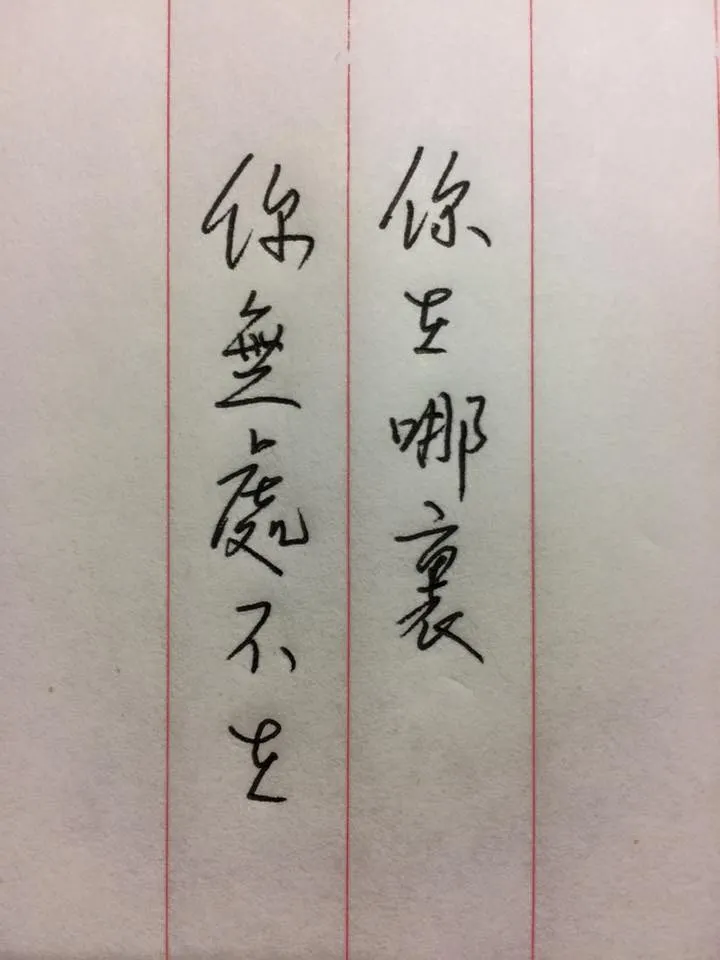 你在哪裏
你無處不在